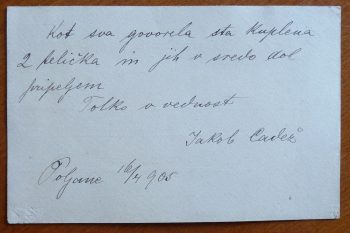 Kot sva govorela sta kuplena
2 telička in jih v sredo dol
pripeljem
Tolko v vednost
Jakob Čadež
Poljane 16/4 905